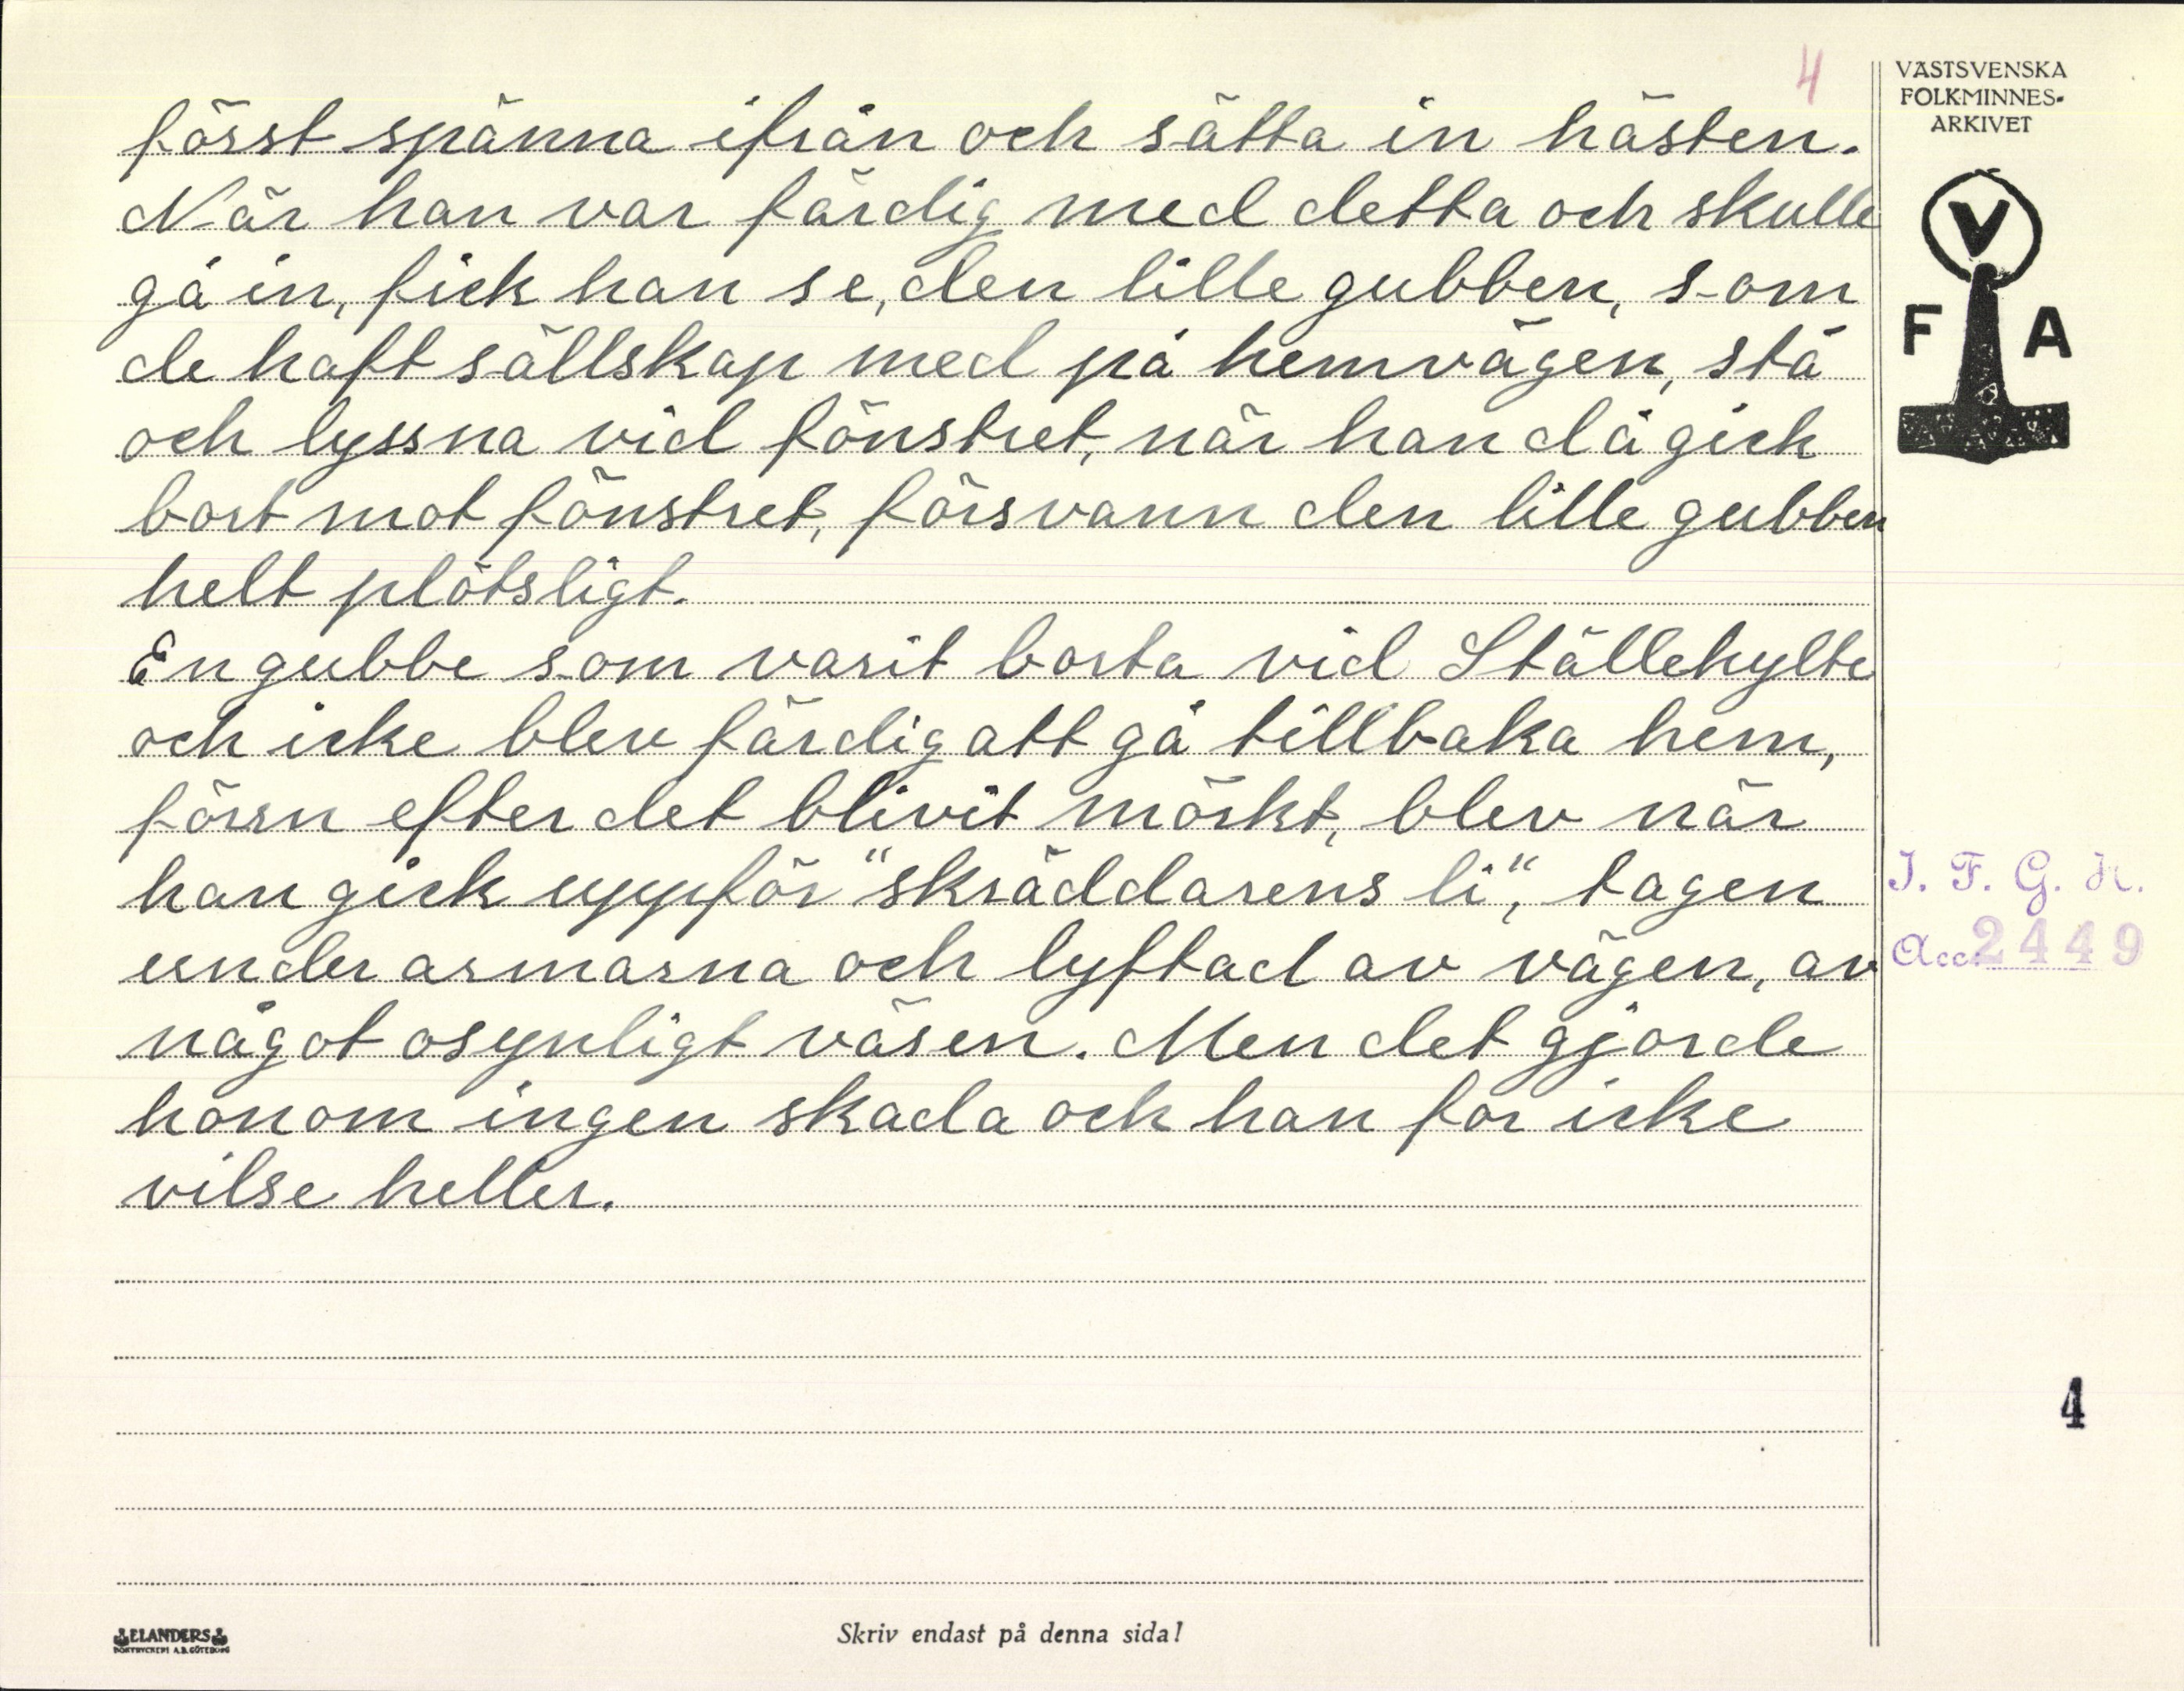 4
VÄSTSVENSKA
FOLKMINNES-
ARKIVET
först spänna ifrån och sätta in hästen.
När han var färdig med detta och skulle
gå in, fick han se, den lille gubben, som
de haft sällskap med på hemvägen, stå
och lyssna vid fönstret, när han då gick
bort mot fönstret, försvann den lille gubben
helt plötsligt.
En gubbe som varit borta vid Ställehylte
och icke blev färdig att gå tillbaka hem,
förrn efter det blivit mörkt, blev när
han gick uppför "skräddarens li", tagen
under armarna och lyftad av vägen, av
något osynligt väsen. Men det gjorde
honom ingen skada och han for icke
vilse heller.
V
F A
I. F. G. H.
Acc. 2449
4
ELANDERS
BOKTRYCKERI A.B. GÖTEBORG
Skriv endast på denna sida!